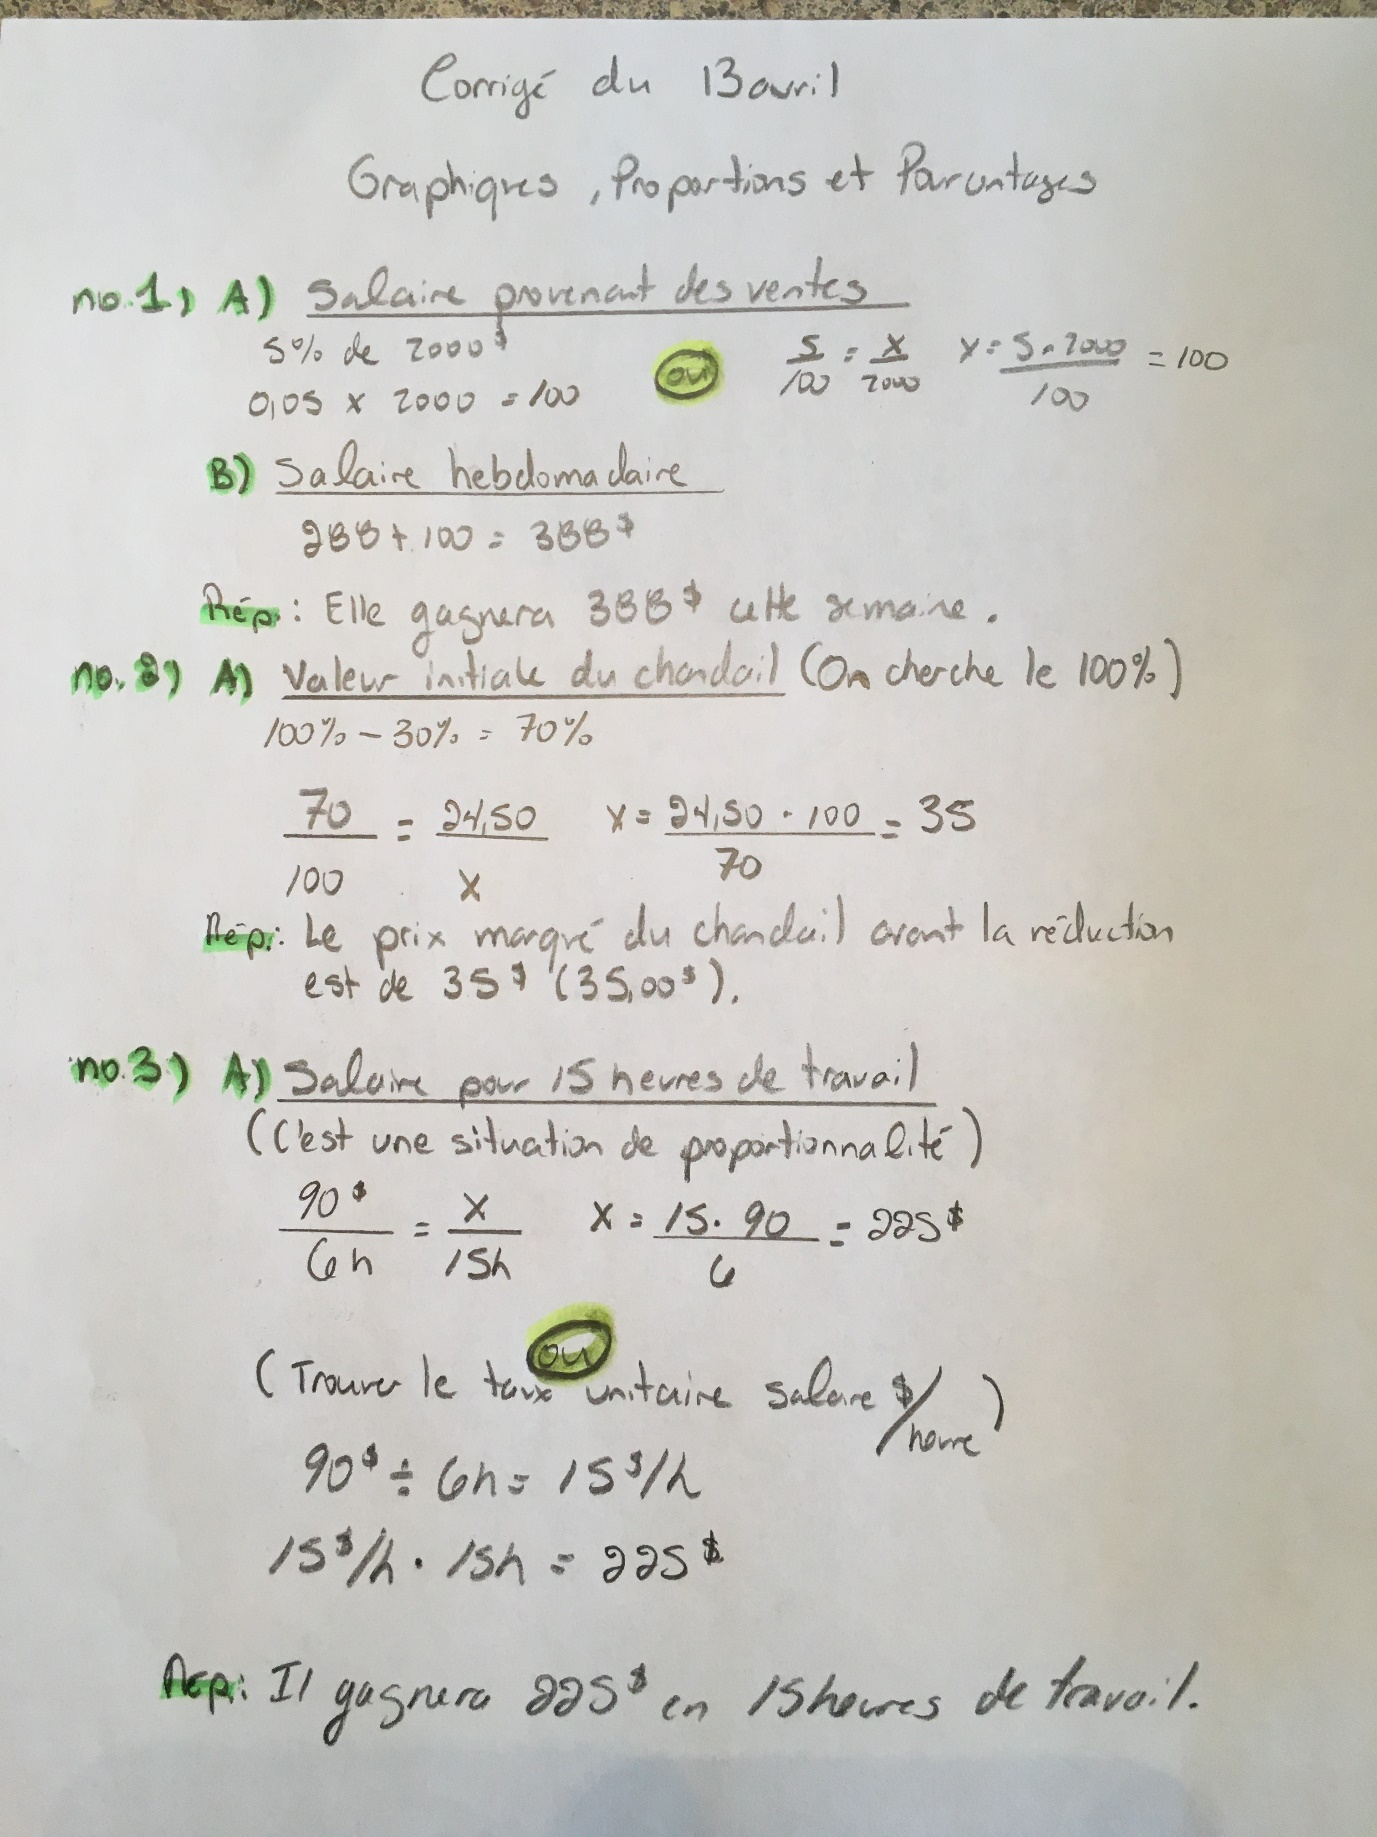 Corrigé du 13 avril
Graphiques, Proportions et Pourcentages
no.1) A) Salaire provenant des ventes
5% de 2000$
0,05 x 2000 = 100
ou
5/100 = x/2000 x = 5 · 2000/100 = 100
B) Salaire hebdomadaire
288 + 100 = 388$
Rép.: Elle gagnera 388$ cette semaine.
no.2) A) Valeur initiale du chandail (On cherche le 100%)
100% - 30% = 70%
70/100 = 24,50/x x = 24,50 · 100/70 = 35
Rép.: Le prix marqué du chandail avant la réduction
est de 35$ (35,00$).
no.3) A) Salaire pour 15 heures de travail
(C'est une situation de proportionnalité)
90$/6h = x/15h x = 15 · 90/6 = 225$
ou
(Trouver le taux unitaire salaire $/heure)
90$ ÷ 6h = 15$/h
15$/h · 15h = 225$
Rép.: Il gagnera 225$ en 15 heures de travail.